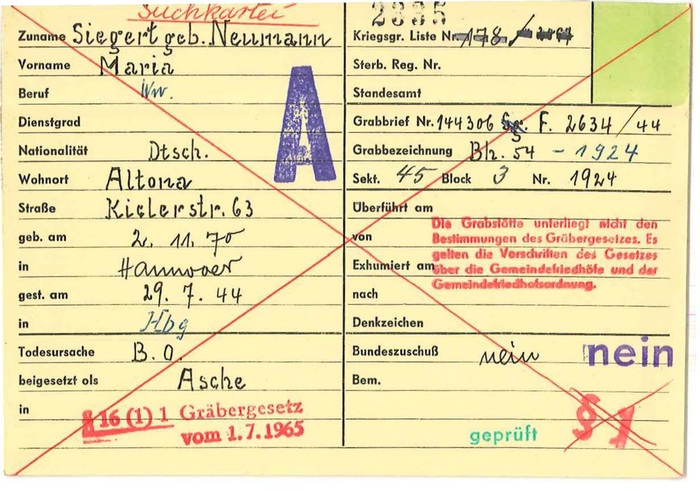 Suchkartei
Zuname Siegert geb. Neumann
Vorname Maria
Beruf Ww.
Dienstgrad
Nationalität Dtsch.
Wohnort Altona
Straße Kielerstr. 63
geb. am 2. 11. 70
in Hannover
gest. am 29. 7. 44
in Hbg
Todesursache B. O.
beigesetzt als Asche
in
§ 16 (1) 1 Gräbergesetz
vom 1.7.1965
A
2335
Kriegsgr. Liste Nr. 178 /
Sterb. Reg. Nr.
Standesamt
Grabbrief Nr. 144306 F. 2634/44
Grabbezeichnung Bh. 54 - 1924
Sekt. 45 Block 3 Nr. 1924
Überführt am
von
Exhumiert am
nach
Die Grabstätte unterliegt nicht den
Bestimmungen des Gräbergesetzes. Es
gelten die Vorschriften des Gesetzes
über die Gemeindefriedhöfe und der
Gemeindefriedhofsordnung.
Denkzeichen
Bundeszuschuß nein nein
Bem.
geprüft § 1